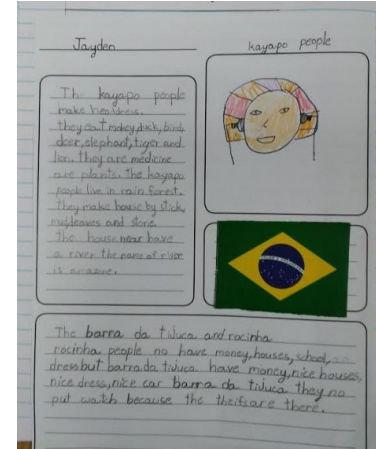 Jayden
kayapo people
The kayapo people
make headress.
they eat mokey, duck, bird,
deer, elephant, tiger and
lion. they are medicine
are plants. The kayapo
people live in rain forest.
they make house by stick,
mud, leaves and stone.
the house near have
a river the name of river
is amazone.
The barra da tiduca and rocinha
rocinha people no have money, houses, school, no
dress but barra da tiduca have money, nice houses,
nice dress, nice car barra da tiduca they no
put watch because the theifs are there.